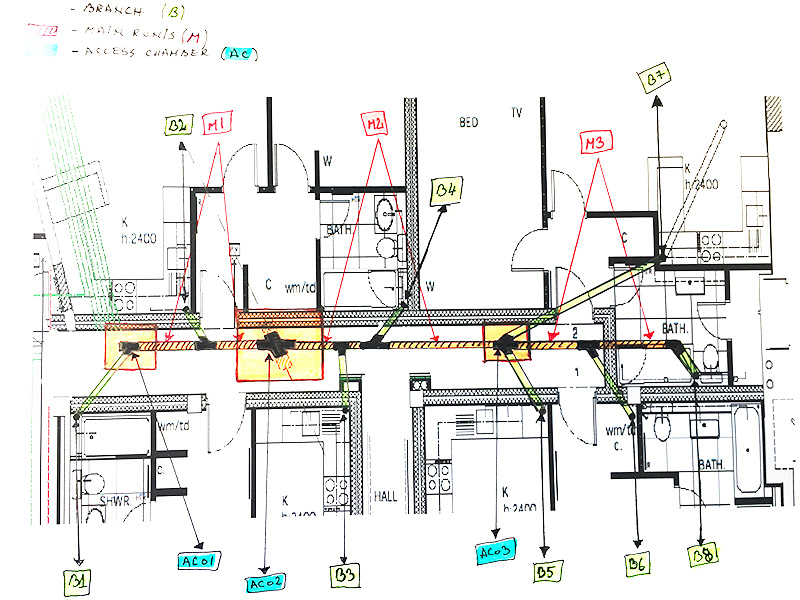 - BRANCH (B)
- MAIN RUN/S (M)
- ACCESS CHAMBER (AC)
B7
B2
M1
M2
M3
BED
TV
W
K
h:2400
B4
K
h:2400
BATH.
C
C
wm/td
W
BATH.
2
1
wm/td
C.
SHWR
K
h:2400
HALL
K
h:2400
wm/td
C.
BATH.
B1
AC01
AC02
B3
AC03
B5
B6
B8